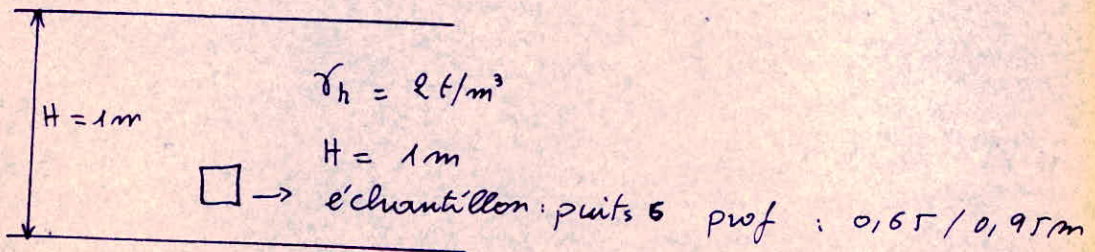 γh = 2t/m³
H = 1m
H = 1m
échantillon : puits 6 prof : 0,65 / 0,95m